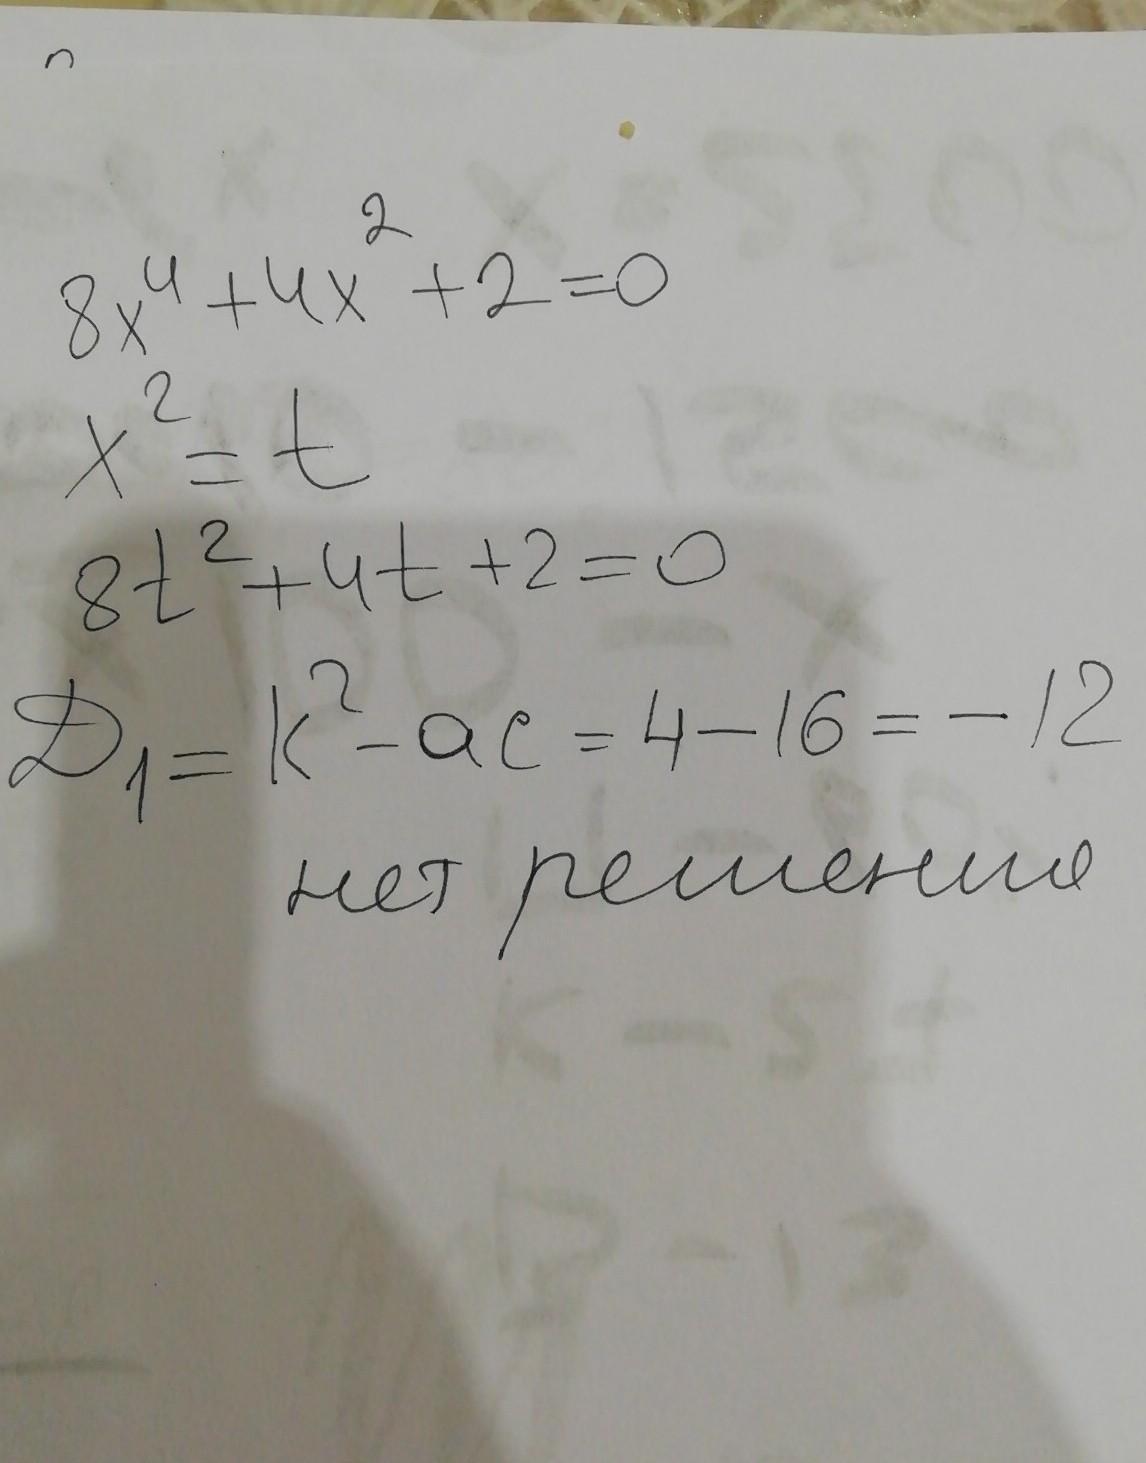 8x⁴+4x²+2=0
x²=t
8t²+4t+2=0
Д₁=k²-ac=4-16=-12
нет решения